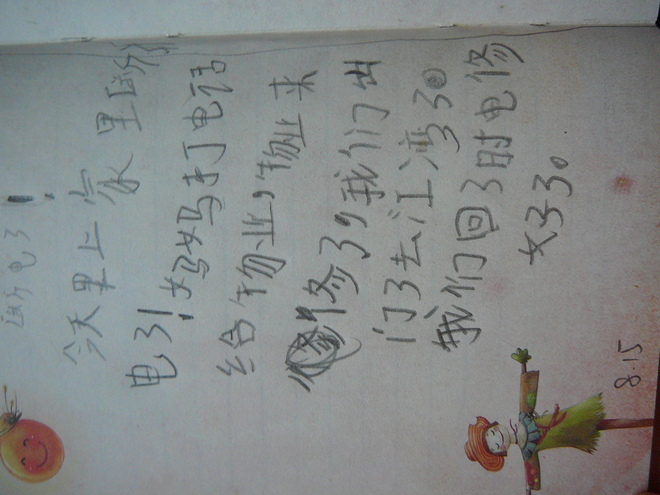 断电了
今天早上家里断
电了!妈妈打电话
给物业,物业来
修了,我们出
门了去江湾了。
我们回了时电修
好了。
8.15